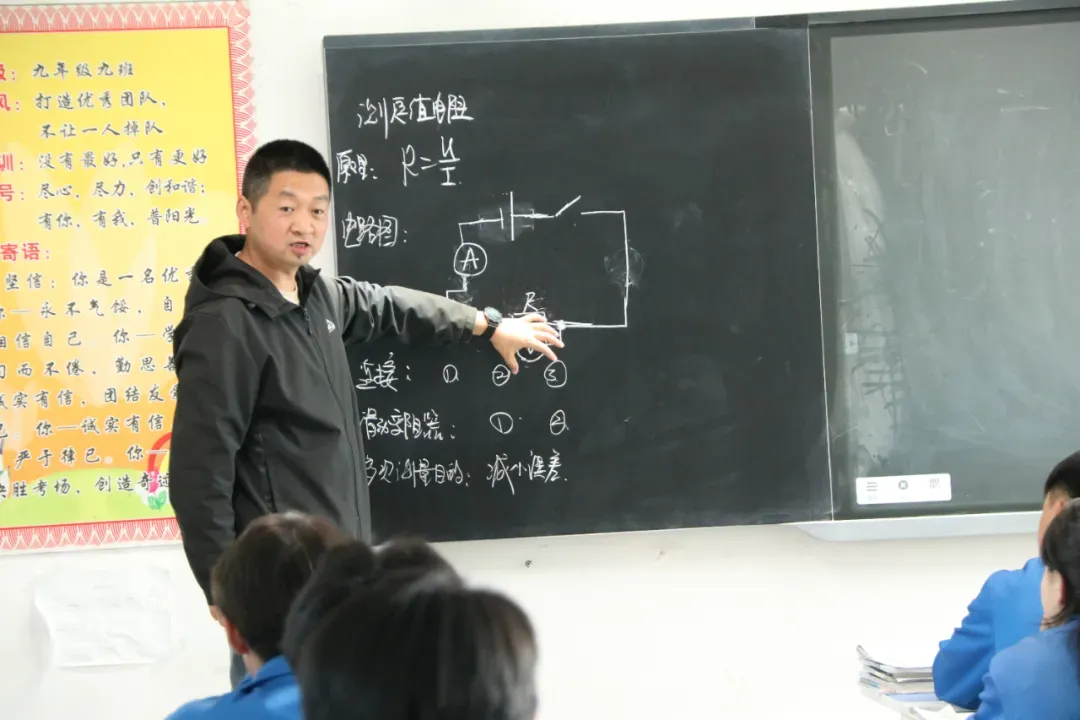 ：九年级九班
：打造优秀团队，
不让一人掉队
训：没有最好，只有更好
号：尽心、尽力、创和谐；
有你、有我、普阳光
寄语：
坚信：你是一名优
永不气馁，自
相信自己 你—学
而不倦，勤思善
诚实有信，团结友
己，你—诚实有信
严于律己，你—
决胜考场，创造奇迹
测定值电阻
原理：R=U/I
电路图：
A
R
连接：① ② ③
滑动变阻器：① ②
多次测量目的：减小误差.